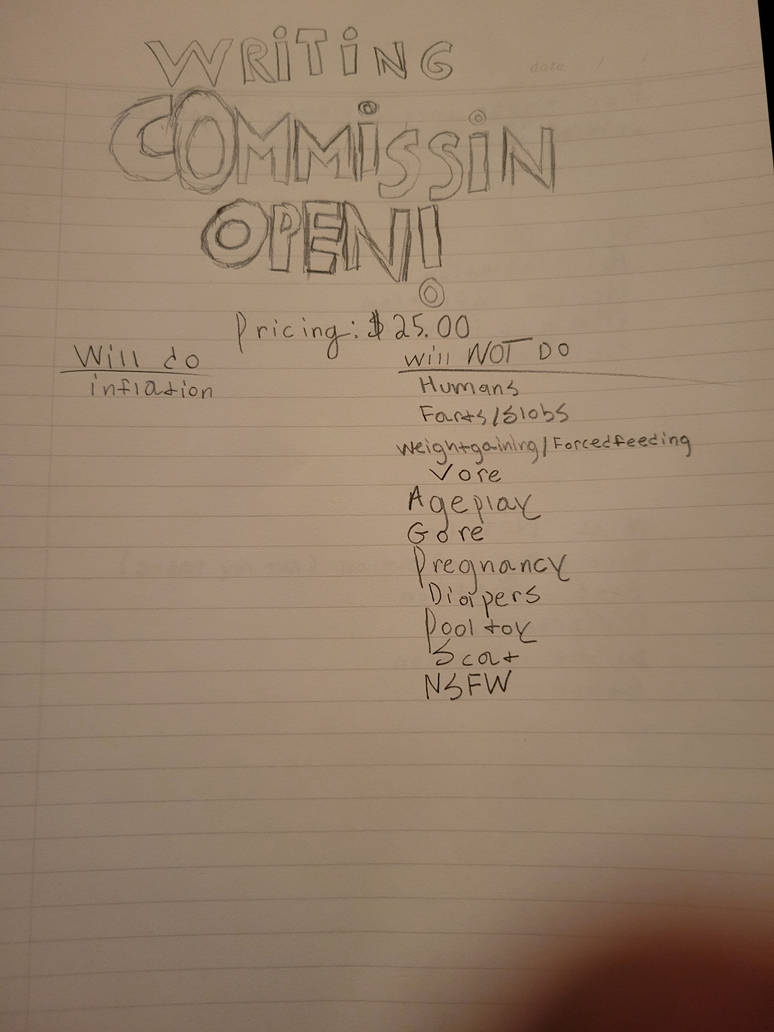 WRiTiNG
date / /
COMMiSSiN
OPEN!
Pricing: $25.00
Will do
inflation
Will NOT DO
Humans
Farts/Slobs
Weightgaining/Forcedfeeding
Vore
Ageplay
Gore
Pregnancy
Diapers
Pool toy
Scat
NSFW